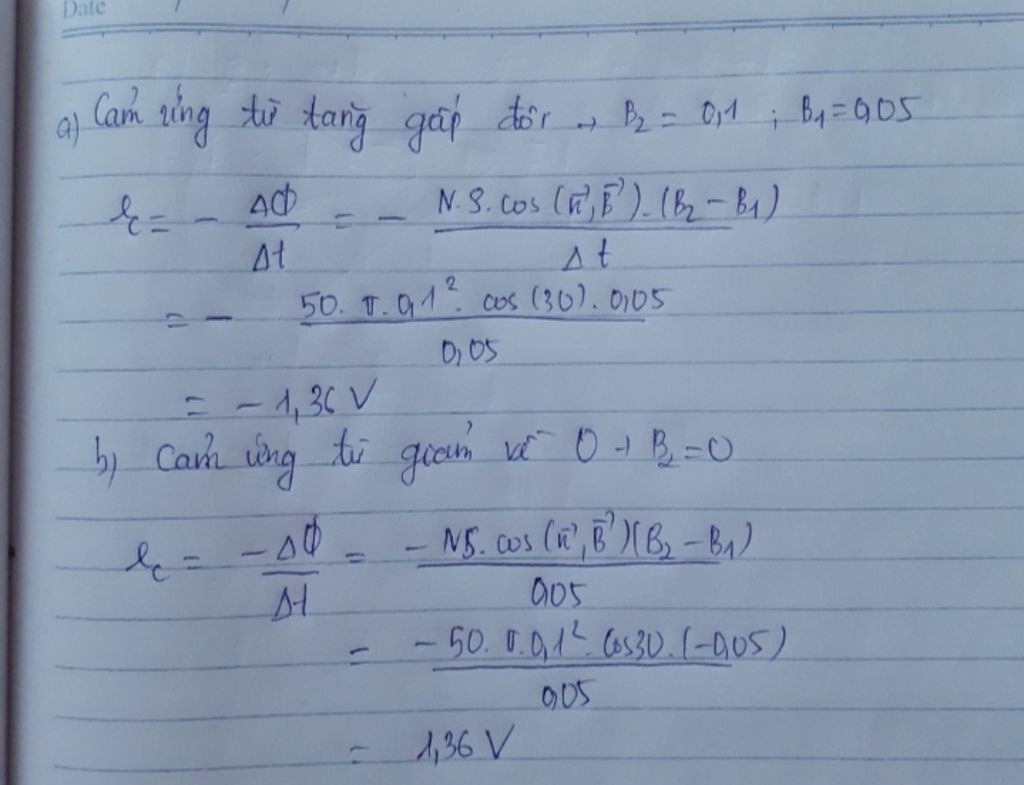 Date / /
a) Cảm ứng từ tăng gấp đôi → B₂ = 0,1 ; B₁ = 0,05
e_c = - ΔΦ/Δt = - N.S.cos(n⃗,B⃗).(B₂ - B₁)/Δt
= - 50.π.0,1².cos(30).0,05/0,05
= - 1,36 V
b) Cảm ứng từ giảm về 0 → B₂ = 0
e_c = -ΔΦ/Δt = - NS.cos(n⃗,B⃗)(B₂ - B₁)/0,05
= - 50.π.0,1².cos30.(-0,05)/0,05
= 1,36 V